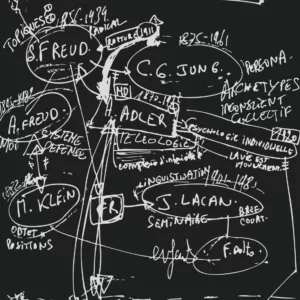 TOPIQUES
1856-1939
S. FREUD
RADICAL
RUPTURE 1911
1875-1961
C. G. JUNG.
PERSONA
ARCHETYPES
INCONSCIENT
COLLECTIF
MD
ADLER
PSYCHOLOGIE INDIVIDUELLE
LA VIE EST
MOUVEMENT
TELEOLOGIE
complexe d'infériorité
A. FREUD
MOI
SYSTEME
DEFENSE
M. KLEIN
OBJET
POSITIONS
FR
LINGUISTIQUE
1901-1981
J. LACAN
SEMINAIRE
COURT.
enfant
F. Dolto